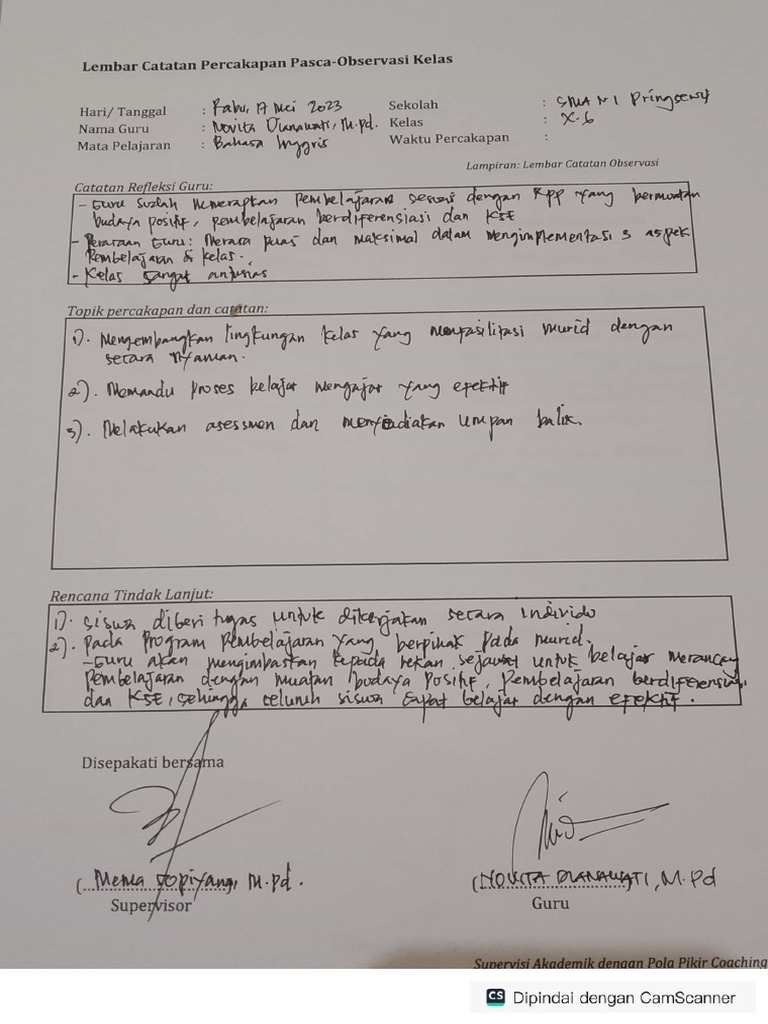 Lembar Catatan Percakapan Pasca-Observasi Kelas
Hari/ Tanggal : Rabu, 17 Mei 2023 Sekolah : SMA N 1 Pringsewu
Nama Guru : Novita Dianawati, M.Pd. Kelas : X.6
Mata Pelajaran : Bahasa Inggris Waktu Percakapan :
Lampiran: Lembar Catatan Observasi
Catatan Refleksi Guru:
- Guru sudah menerapkan pembelajaran sesuai dengan RPP yang bermuatan
budaya positif, pembelajaran berdiferensiasi dan KSE
- Perasaan Guru: Merasa puas dan maksimal dalam mengimplementasi 3 aspek
pembelajaran di kelas.
- Kelas sangat antusias
Topik percakapan dan catatan:
1). Mengembangkan lingkungan kelas yang memfasilitasi murid dengan
secara nyaman.
2). Memandu proses belajar mengajar yang efektif
3). Melakukan asessmen dan menyediakan umpan balik.
Rencana Tindak Lanjut:
1). Siswa diberi tugas untuk dikerjakan secara individo
2). Pada Program Pembelajaran yang berpihak pada murid.
- Guru akan mengimbaskan kepada rekan sejawat untuk belajar merancang
pembelajaran dengan muatan budaya positif, pembelajaran berdiferensiasi,
dan KSE, sehingga seluruh siswa dapat belajar dengan efektif.
Disepakati bersama
( M.Pd. (NOVITA DIANAWATI, M.Pd
Supervisor Guru
Supervisi Akademik dengan Pola Pikir Coaching
CS Dipindai dengan CamScanner